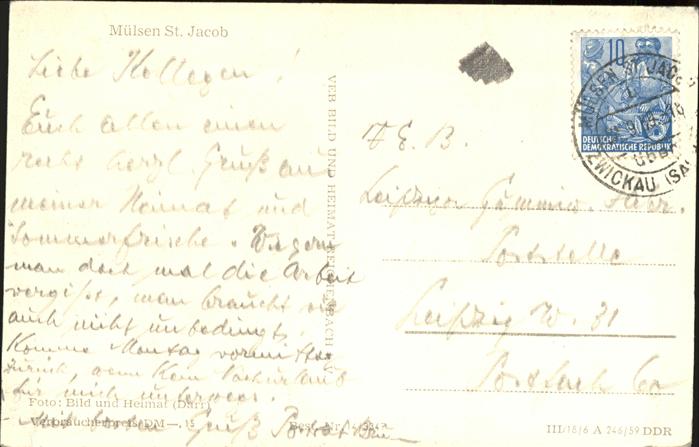 Mülsen St. Jacob
Liebe Kollegen!
Euch allen einen
recht herzl. Gruß aus
meiner Heimat und
Sommerfrische.
man doch mal die Arbeit
vergißt, man braucht sie
auch nicht unbedingt.
Komme Montag vormittag
zurück, wenn kein
für mich unterwegs.
Mit besten Gruß
Foto: Bild und Heimat (Darr)
Verbraucherpreis DM —,15
Best. Nr.
VEB BILD UND HEIMAT REICHENBACH I. V.
10
DEUTSCHE
DEMOKRATISCHE REPUBLIK
MÜLSEN ST JACOB
ÜBER
ZWICKAU (SA
V. E. B.
Leipziger Gummiw. Fabr.
Poststelle
Leipzig W. 31
Postfach
III/18/6 A 246/59 DDR